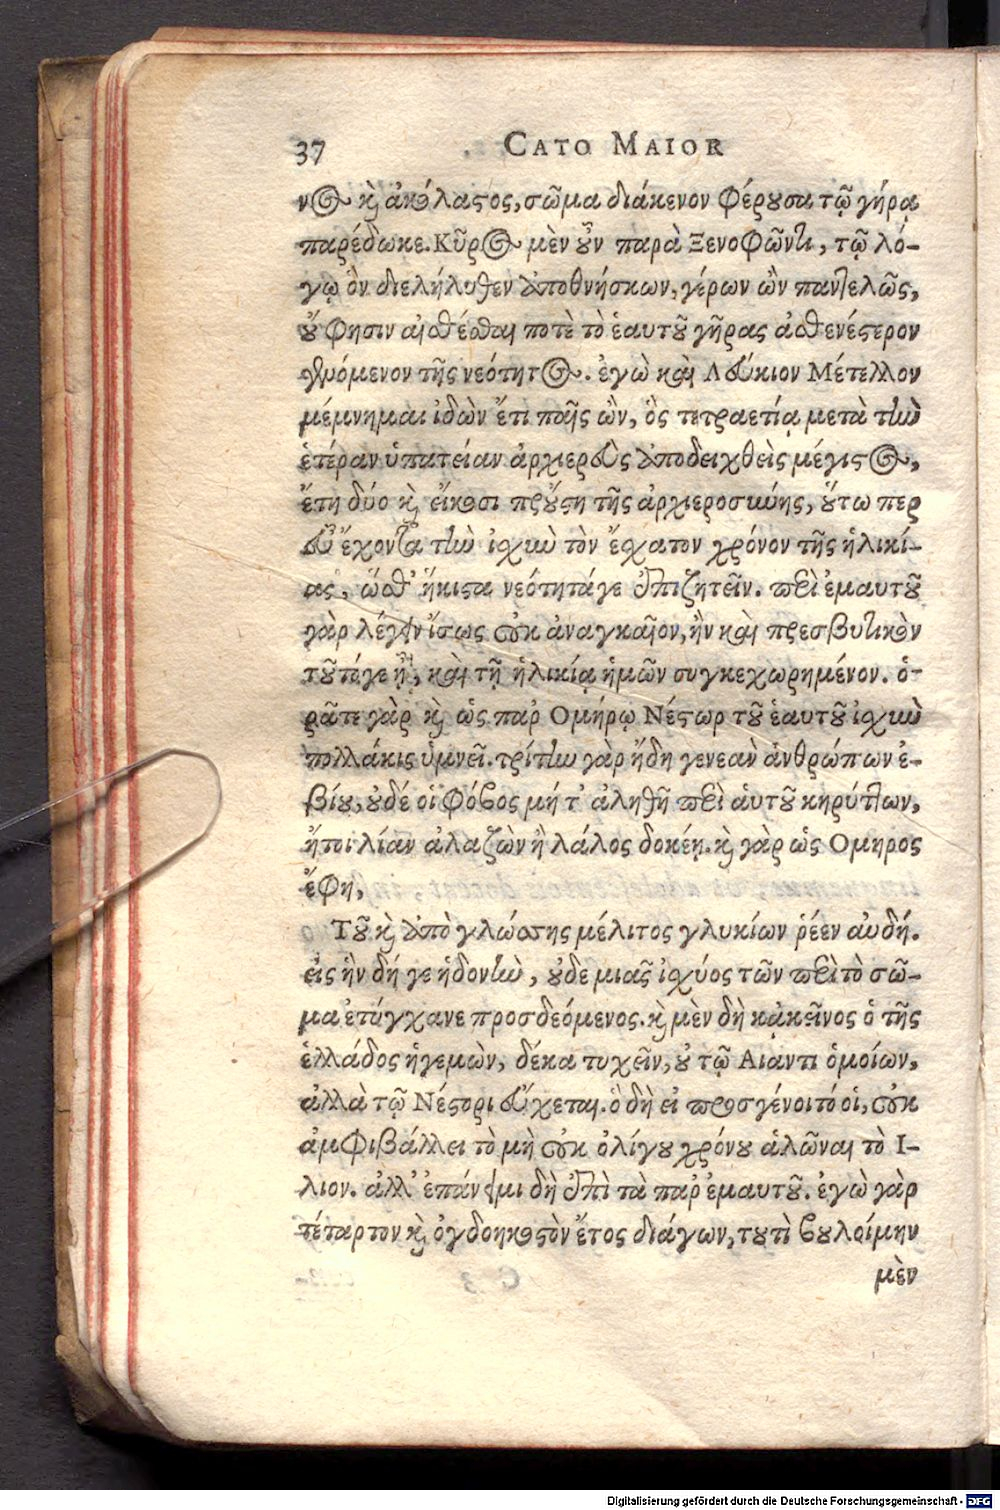 37 CATO MAIOR
νος καὶ ἀκόλαστος, σῶμα διάκενον φέρουσα τῷ γήρᾳ
παρέδωκε. Κῦρος μὲν οὖν παρὰ Ξενοφῶντι, τῷ λό-
γῳ ὃν διελήλυθεν ἀποθνήσκων, γέρων ὢν παντελῶς,
οὔ φησιν αἰσθέσθαι ποτὲ τὸ ἑαυτοῦ γῆρας ἀσθενέστερον
γενόμενον τῆς νεότητος. ἐγὼ καὶ Λεύκιον Μέτελλον
μέμνημαι ἰδὼν ἔτι παῖς ὢν, ὃς τετραετίᾳ μετὰ τὴν
ἑτέραν ὑπατείαν ἀρχιερεὺς ἀποδειχθεὶς μέγιστος,
ἔτη δύο καὶ εἴκοσι προὔστη τῆς ἀρχιεροσύνης, οὕτω περ
εὖ ἔχοντα τὴν ἰσχὺν τὸν ἔσχατον χρόνον τῆς ἡλικί-
ας, ὥσθ' ἥκιστα νεότητάγε ἐπιζητεῖν. περὶ ἐμαυτοῦ
γὰρ λέγειν ἴσως οὐκ ἀναγκαῖον, ἢν καὶ πρεσβυτικὸν
τοῦτόγε ᾖ, καὶ τῇ ἡλικίᾳ ἡμῶν συγκεχωρημένον. ὁ-
ρᾶτε γὰρ καὶ ὡς παρ Ομήρῳ Νέστωρ τοῦ ἑαυτοῦ ἰσχὺν
πολλάκις ὑμνεῖ. τρίτην γὰρ ἤδη γενεὰν ἀνθρώπων ἐ-
βίου, οὐδέ οἱ φόβος μή τ' ἀληθῆ περὶ αὑτοῦ κηρύττων,
ἤτοι λίαν ἀλαζὼν ἢ λάλος δοκέῃ. καὶ γὰρ ὡς Ομηρος
ἔφη,
Τοῦ καὶ ἀπὸ γλώσσης μέλιτος γλυκίων ῥέεν αὐδή.
εἰς ἣν δή γε ἡδονὴν, οὐδε μιᾶς ἰσχύος τῶν περὶ τὸ σῶ-
μα ἐτύγχανε προσδεόμενος. καὶ μὲν δὴ κᾀκεῖνος ὁ τῆς
ἑλλάδος ἡγεμὼν, δέκα τυχεῖν, οὐ τῷ Αιαντι ὁμοίων,
ἀλλὰ τῷ Νέστορι εὔχεται. ὃ δὴ εἰ προσγένοιτό οἱ, οὐκ
ἀμφιβάλλει τὸ μὴ οὐκ ὀλίγου χρόνου ἁλῶναι τὸ Ι-
λιον. ἀλλ' ἐπάνειμι δὴ ἐπὶ τὰ παρ' ἐμαυτοῦ. ἐγὼ γὰρ
τέταρτον καὶ ὀγδοηκοστὸν ἔτος διάγων, τουτὶ βουλοίμην
μὲν
Digitalisierung gefördert durch die Deutsche Forschungsgemeinschaft - DFG